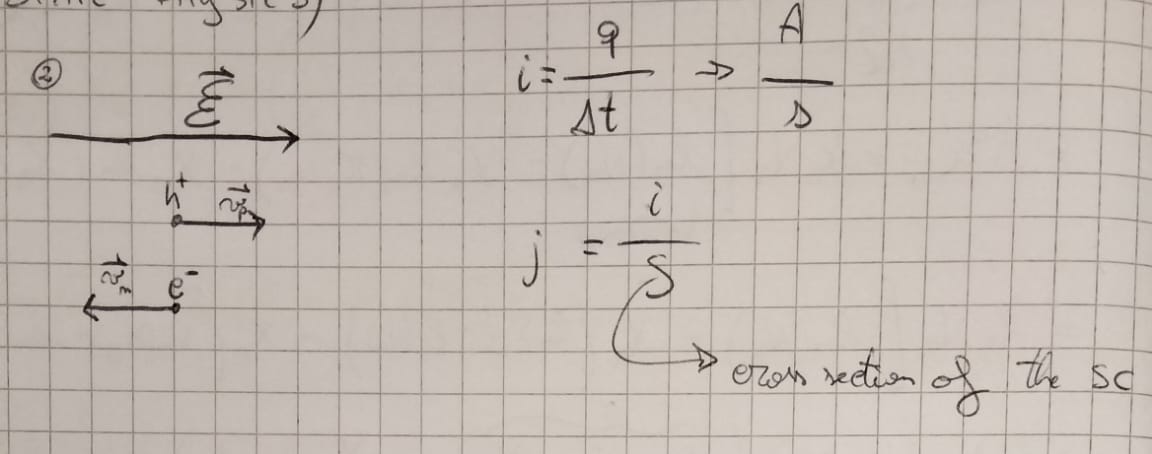 ②
ℰ⃗
h⁺ v⃗ₚ
v⃗ₙ e⁻
i = q / Δt → A / s
j = i / S
cross section of the SC